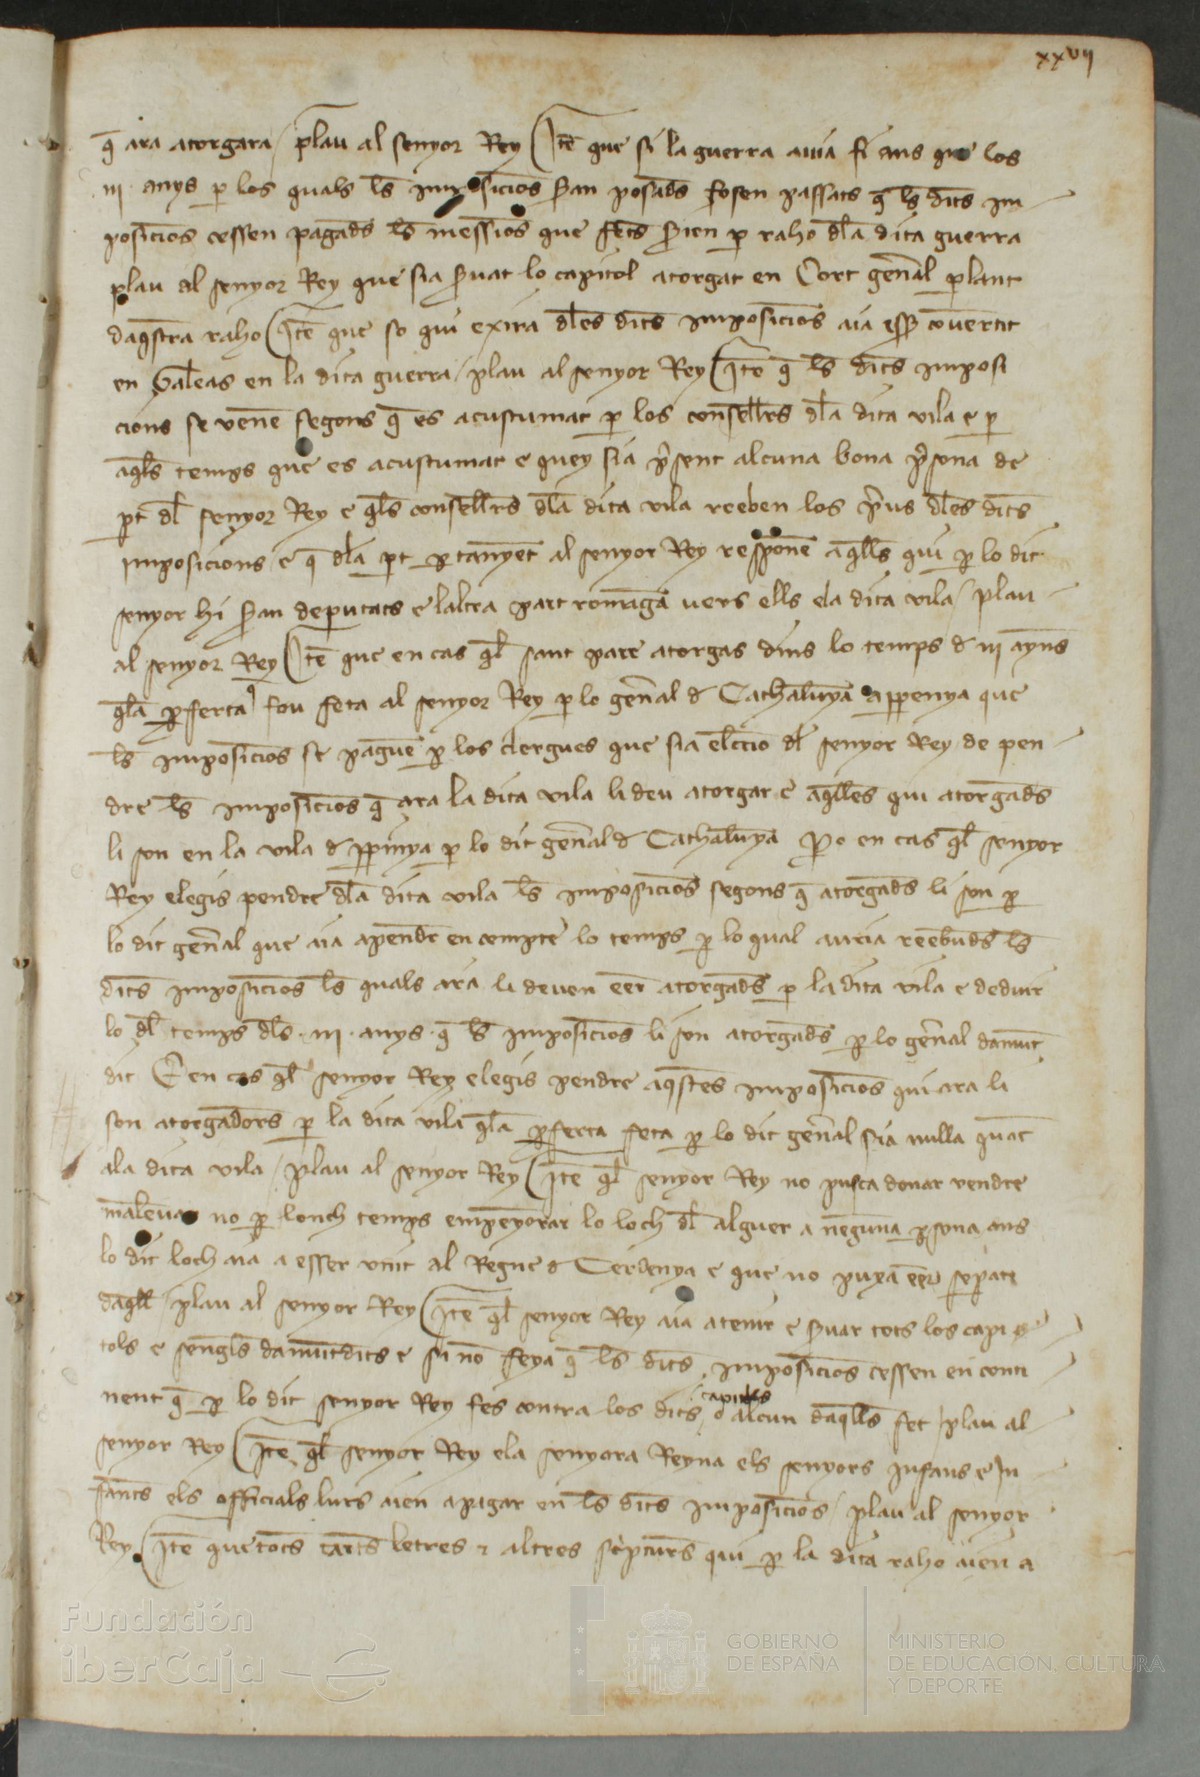 xxvij
q̄ ara atorgara / plau al senyor Rey (Itē que si la guerra auia fi ans que los
.iij. anys p̱ los quals lēs imposicions s̄an posades fosen passats q̄ lēs dit̄s im
posicions cessen pagad̄s lēs messions que fetēs s̄ien p̱ raho dl̄a dita guerra
plau al senyor Rey que sia s̄uat lo capitol atorgat en Cort gen̄al p̱lant
daq̄sta raho (Itē que so qui exira dl̄es dit̄s imposicions aia ess̄ conuertit
en Galeas en la dita guerra / plau al senyor Rey (Itē q̄ lēs dit̄s imposi
cions se venē segons q̄ es acustumat p̱ los consellers dl̄a dita vila e p̱
aq̄ls temps que es acustumat e quey sia p̄sent alcuna bona p̱sona de
p̱t dl̄ senyor Rey e q̄ls consellers dl̄a dita vila reeben los p̄us dl̄es dit̄s
imposicions e q̄ dl̄a p̱t p̱tanyēt al senyor Rey responē aq̄lls qui p̱ lo dit
senyor hi s̄an deputats e laltra part romāga vers ells e la dita vila / plau
al senyor Rey (Itē que en cas q̄l sant pare atorgas dins lo temps d̄ iij anys
q̄la p̱ferta q̄ fou feta al senyor Rey p̱ lo gen̄al d̄ Cathalunya a p̱penya que
lēs imposicions se paguē p̱ los clergues que sia eleccio dl̄ senyor Rey de pen
dre lēs imposicions q̄ ara la dita vila li deu atorgar e aq̄lles qui atorgad̄s
li son en la vila d̄ p̱pinya p̱ lo dit gen̄al d̄ Cathalunya P̱o en cas q̄l senyor
Rey elegis pendre dl̄a dita vila lēs imposicions segons q̄ atorgad̄s li son p̱
lo dit gen̄al que aia apendr̄ en compte lo temps p̱ lo qual auria reebud̄s lēs
dit̄s imposicions lēs quals ara li deuen eēr atorgad̄s p̱ la dita vila e deduir
lo dl̄ temps dl̄s .iij. anys q̄ lēs imposicions li son atorgad̄s p̱ lo gen̄al damūt
dit E en cas q̄l senyor Rey elegis pendre aq̄stes imposicions qui ara li
son atorgadors p̱ la dita vila q̄la p̱ferta feta p̱ lo dit gen̄al sia nulla quāt
ala dita vila / plau al senyor Rey (Itē q̄l senyor Rey no pusca donar vendre
māleuar no p̱ lonch temps empenyorar lo loch dl̄ alguer a nēguna p̱sona ans
lo dit loch aia a esser unit al Regne d̄ Cerdenya e que no puxa eēr sep̱at
daq̄ll / plau al senyor Rey (Itē q̄l senyor Rey aia a tenir e s̄uar tots los capi
tols e sengles damūtdits e si nō feya q̄ lēs dit̄s imposicions cessen en conti
nent q̄ p̱ lo dit senyor Rey fes contra los dits capitols o alcun daq̄lls fet / plau al
senyor Rey (Itē q̄l senyor Rey e la senyora Reyna els senyors Infans e In
fantēs els officials lurs aien a pagar en lēs dit̄s imposicions / plau al senyor
Rey. (Itē que totēs cartēs letres e altres sc̄pturēs qui p̱ la dita raho aien a
Fundación
iberCaja
GOBIERNO
DE ESPAÑA
MINISTERIO
DE EDUCACIÓN, CULTURA
Y DEPORTE